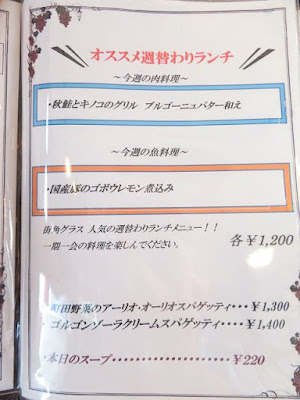 オススメ週替わりランチ
～今週の肉料理～
・秋鮭とキノコのグリル ブルゴーニュバター和え
～今週の魚料理～
・国産豚のゴボウレモン煮込み
街角グラス 人気の週替わりランチメニュー！！
一期一会の料理を楽しんでください。
各￥1,200
・町田野菜のアーリオ・オーリオスパゲッティ・・・￥1,300
・ゴルゴンゾーラクリームスパゲッティ・・・・￥1,400
・本日のスープ・・・・・・・・・・・・・・・・・￥220